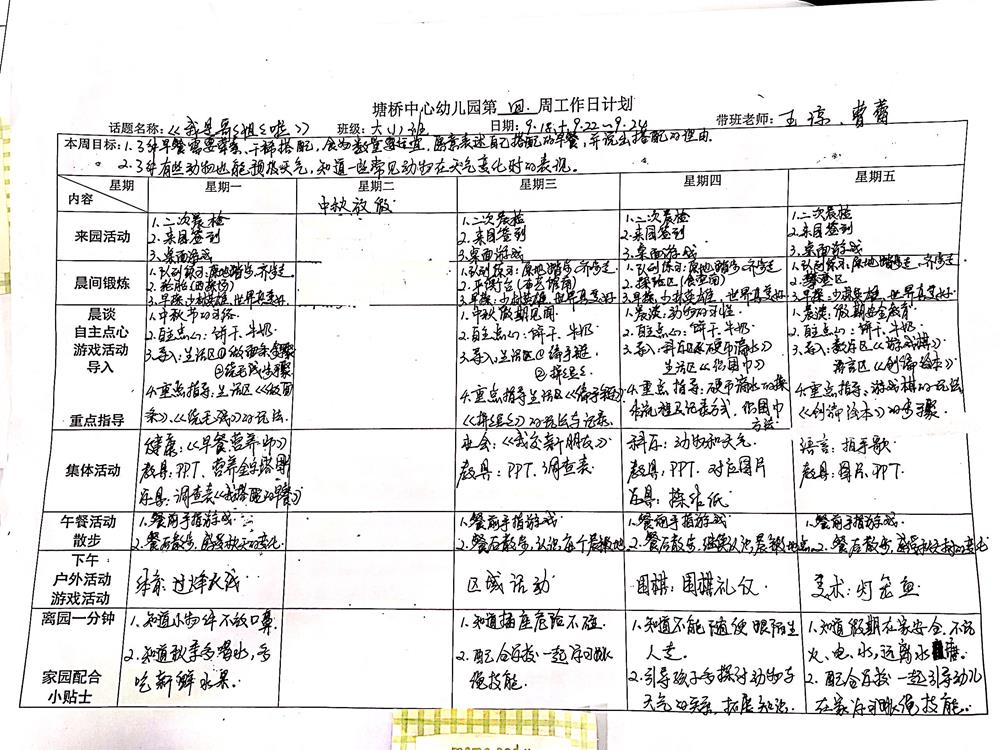 塘桥中心幼儿园第 四 周工作日计划
话题名称:《我是哥哥姐姐啦》 班级:大(1)班 日期:9.18+9.22~9.24 带班老师:王琼、曹蕾
本周目标:1.了解早餐需要荤素、干稀搭配,食物数量要适宜,愿意表述自己搭配的早餐,并说出搭配的理由。
2.了解有些动物也能预报天气,知道一些常见动物在天气变化时的表现。
星期 星期一 星期二 星期三 星期四 星期五
内容
中秋放假
来园活动
1.二次晨检
2.来园签到
3.桌面游戏
1.二次晨检
2.来园签到
3.桌面游戏
1.二次晨检
2.来园签到
3.桌面游戏
1.二次晨检
2.来园签到
3.桌面游戏
晨间锻炼
1.队列练习:原地踏步、齐步走
2.轮胎
3.早操:少年英雄、世界真美好
1.队列练习:原地踏步、齐步走
2.平衡
3.早操:少年英雄、世界真美好
1.队列练习:原地踏步、齐步走
3.早操:少年英雄、世界真美好
1.队列练习:原地踏步、齐步走
2.攀登区
3.早操:少年英雄、世界真美好
晨谈
自主点心
游戏活动
导入
重点指导
1.中秋节的习俗
2.自主点心:饼干、牛奶
3.导入:生活区
4.重点指导:生活区
的玩法。
1.中秋假期见闻
2.自主点心:饼干、牛奶
3.导入:生活区
4.重点指导:生活区
的玩法与记录。
1.晨谈:动物的习性
2.自主点心:饼干、牛奶
3.导入:科学区《硬币滴水》
生活区
4.重点指导:硬币滴水的操
作流程及记录方式,
方法
1.晨谈:假期安全教育
2.自主点心:饼干、牛奶
3.导入:数学区《游戏棋》
语言区《创编绘本》
4.重点指导:游戏棋的玩法
《创编绘本》的步骤
集体活动
健康:《早餐营养师》
教具:PPT、营养金字塔图
学具:调查表《我搭配的早餐》
社会:《我交新朋友》
教具:PPT、调查表
科学:动物和天气
教具:PPT、对应图片
学具:操作纸
语言:指手歌
教具:图片、PPT
午餐活动
散步
1.餐前手指游戏
2.餐后散步,感受秋天的变化
1.餐前手指游戏
2.餐后散步,认识每个晨锻地点
1.餐前手指游戏
2.餐后散步,继续认识晨锻地点
1.餐前手指游戏
2.餐后散步,感受秋天树的变化
下午
户外活动
游戏活动
体育:过烽火线
区域活动
围棋:围棋礼仪
美术:灯笼鱼
离园一分钟
家园配合
小贴士
1.知道小物件不放口鼻
2.知道秋季多喝水,多
吃新鲜水果。
1.知道插座危险不碰。
2.配合学校一起学习跳
绳技能。
1.知道不能随便跟陌生
人走。
2.引导孩子多探讨动物与
天气的关系,拓展知识。
1.知道假期在家安全,不玩
火、电、水,远离水
2.配合学校一起引导幼儿
在家学习跳绳技能。